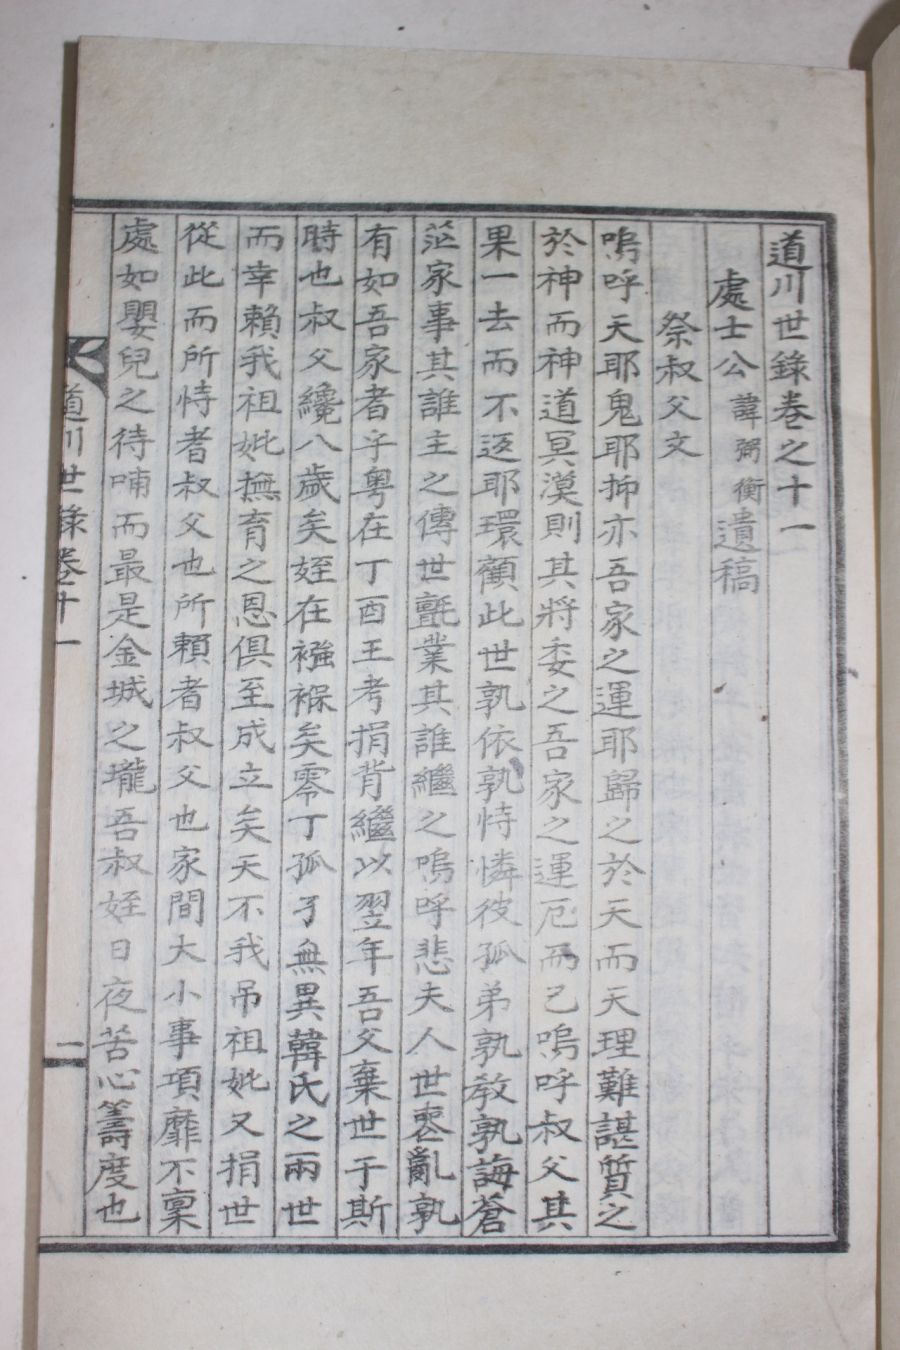 道川世錄卷之十一
處士公諱弼衡遺稿
祭叔父文
嗚呼天耶鬼耶抑亦吾家之運耶歸之於天而天理難諶質之
於神而神道冥漠則其將委之吾家之運厄而已嗚呼叔父其
果一去而不返耶環顧此世孰依孰恃憐彼孤弟孰敎孰誨蒼
茫家事其誰主之傳世氈業其誰繼之嗚呼悲夫人世喪亂孰
有如吾家者乎粤在丁酉王考捐背繼以翌年吾父棄世于斯
時也叔父纔八歲矣姪在襁褓矣零丁孤孑無異韓氏之兩世
而幸賴我祖妣撫育之恩俱至成立矣天不我吊祖妣又捐世
從此而所恃者叔父也所賴者叔父也家間大小事項靡不稟
處如嬰兒之待哺而最是金城之壠吾叔姪日夜苦心籌度也
道川世錄卷十一
一